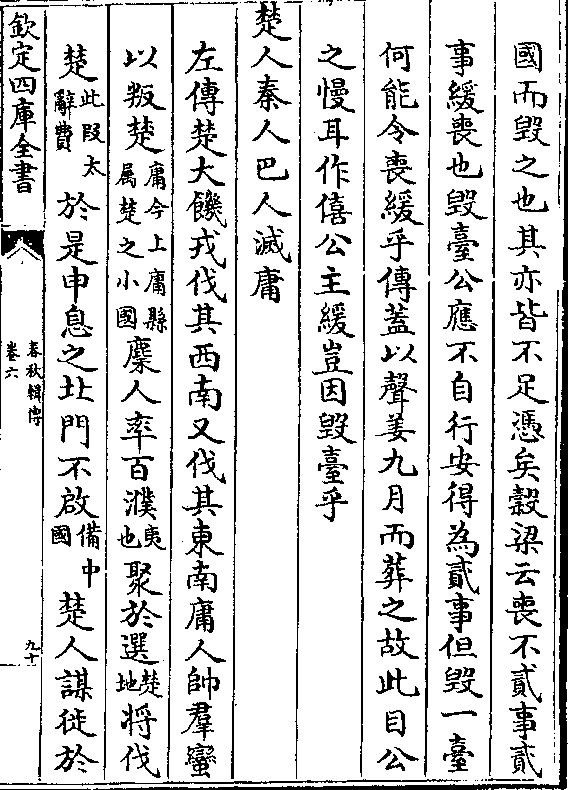 國而毀之也其亦皆不足憑矣穀梁云喪不貳事貳
事緩喪也毀臺公應不自行安得為貳事但毀一臺
何能令喪緩乎傳蓋以聲姜九月而葬之故此目公
之慢耳作僖公主緩豈因毀臺乎
楚人秦人巴人滅庸
左傳楚大饑戎伐其西南又伐其東南庸人帥羣蠻
以叛楚庸今上庸縣属楚之小國麇人率百濮夷也聚於選楚地將伐
楚此段太辭費於是申息之北門不啟備中國楚人謀徙於
欽定四庫全書
春秋輯傳
卷六
九十